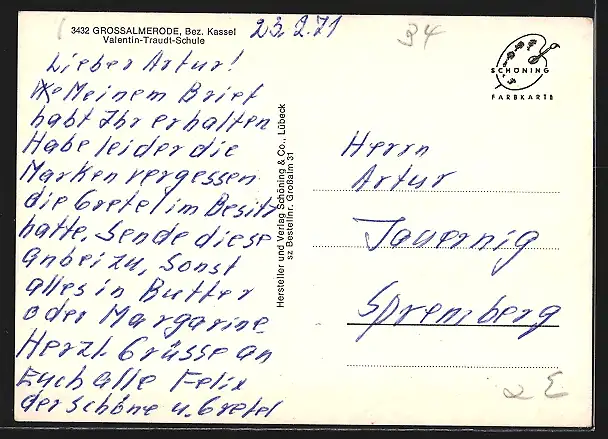 3432 GROSSALMERODE, Bez. Kassel
Valentin-Traudt-Schule
23.2.71
34
Lieber Artur!
Meinem Brief
habt Ihr erhalten
Habe leider die
Marken vergessen
die Gretel im Besitz
hatte. Sende diese
anbei zu, Sonst
alles in Butter
oder Margarine
Herzl. Grüsse an
Euch alle Felix
der schöne u. Gretel
Hersteller und Verlag Schöning & Co., Lübeck
sz Bestellnr. Großalm 31
SCHÖNING
FARBKARTE
Herrn
Artur
Jauernig
Spremberg